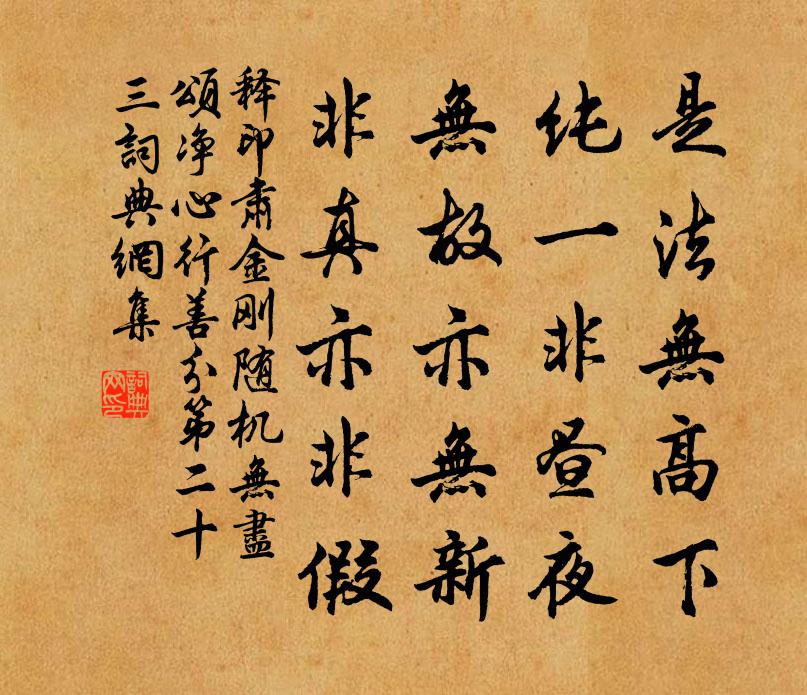 是法無高下
纯一非昼夜
無故亦無新
非真亦非假
释印肃金刚随机無盡
頌净心行善分第二十
三詞典網集
詞典
网印